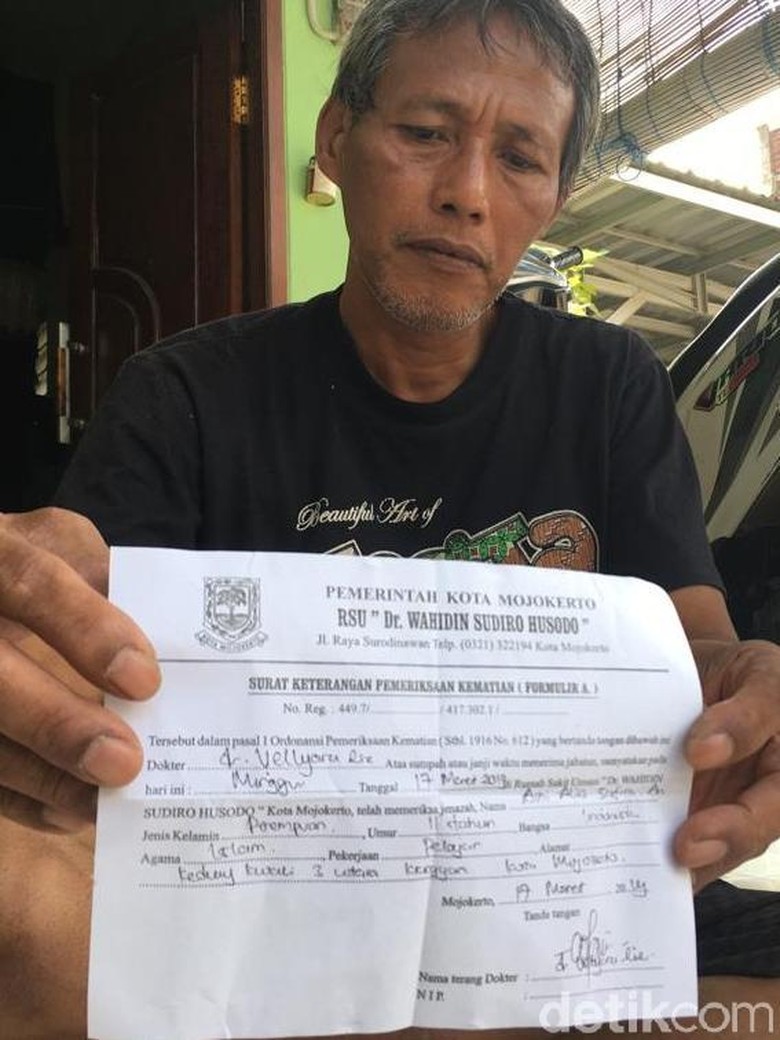 Beautiful Art of
KOTA MOJOKERTO
PEMERINTAH KOTA MOJOKERTO
RSU " Dr. WAHIDIN SUDIRO HUSODO "
Jl. Raya Surodinawan Telp. (0321) 322194 Kota Mojokerto
SURAT KETERANGAN PEMERIKSAAN KEMATIAN ( FORMULIR A. )
No. Reg. : 449.7/ / 417.302.1 /
Tersebut dalam pasal 1 Ordonansi Pemeriksaan Kematian ( Stbl. 1916 No. 612 ) yang bertanda tangan dibawah ini
Dokter dr. Atas sumpah atau janji waktu menerima jabatan, menyatakan pada
hari ini : Minggu Tanggal 17 Maret 2019 di Rumah Sakit Umum "Dr. WAHIDIN
SUDIRO HUSODO " Kota Mojokerto, telah memeriksa jenazah, Nama
Jenis Kelamin Perempuan , Umur tahun Bangsa Indonesia
Agama Islam , Pekerjaan Pelajar Alamat
Kedung 3 utara Kota Mojokerto.
Mojokerto, 17 Maret 2019
Tanda tangan
Nama terang Dokter :
N I P. :
detikcom